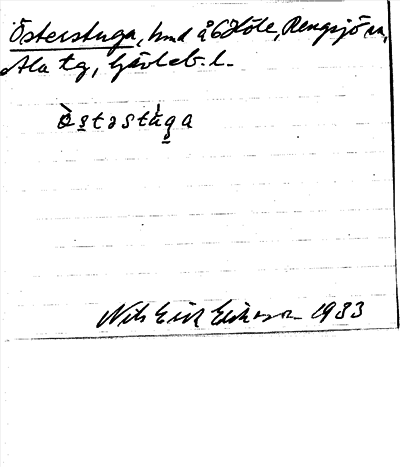 Österstuga, hmd å 6 Höle, Rengsjö sn,
Ala tg, Gävleb. l.
ö̀stəstùga
Nils Erik Eriksson 1933